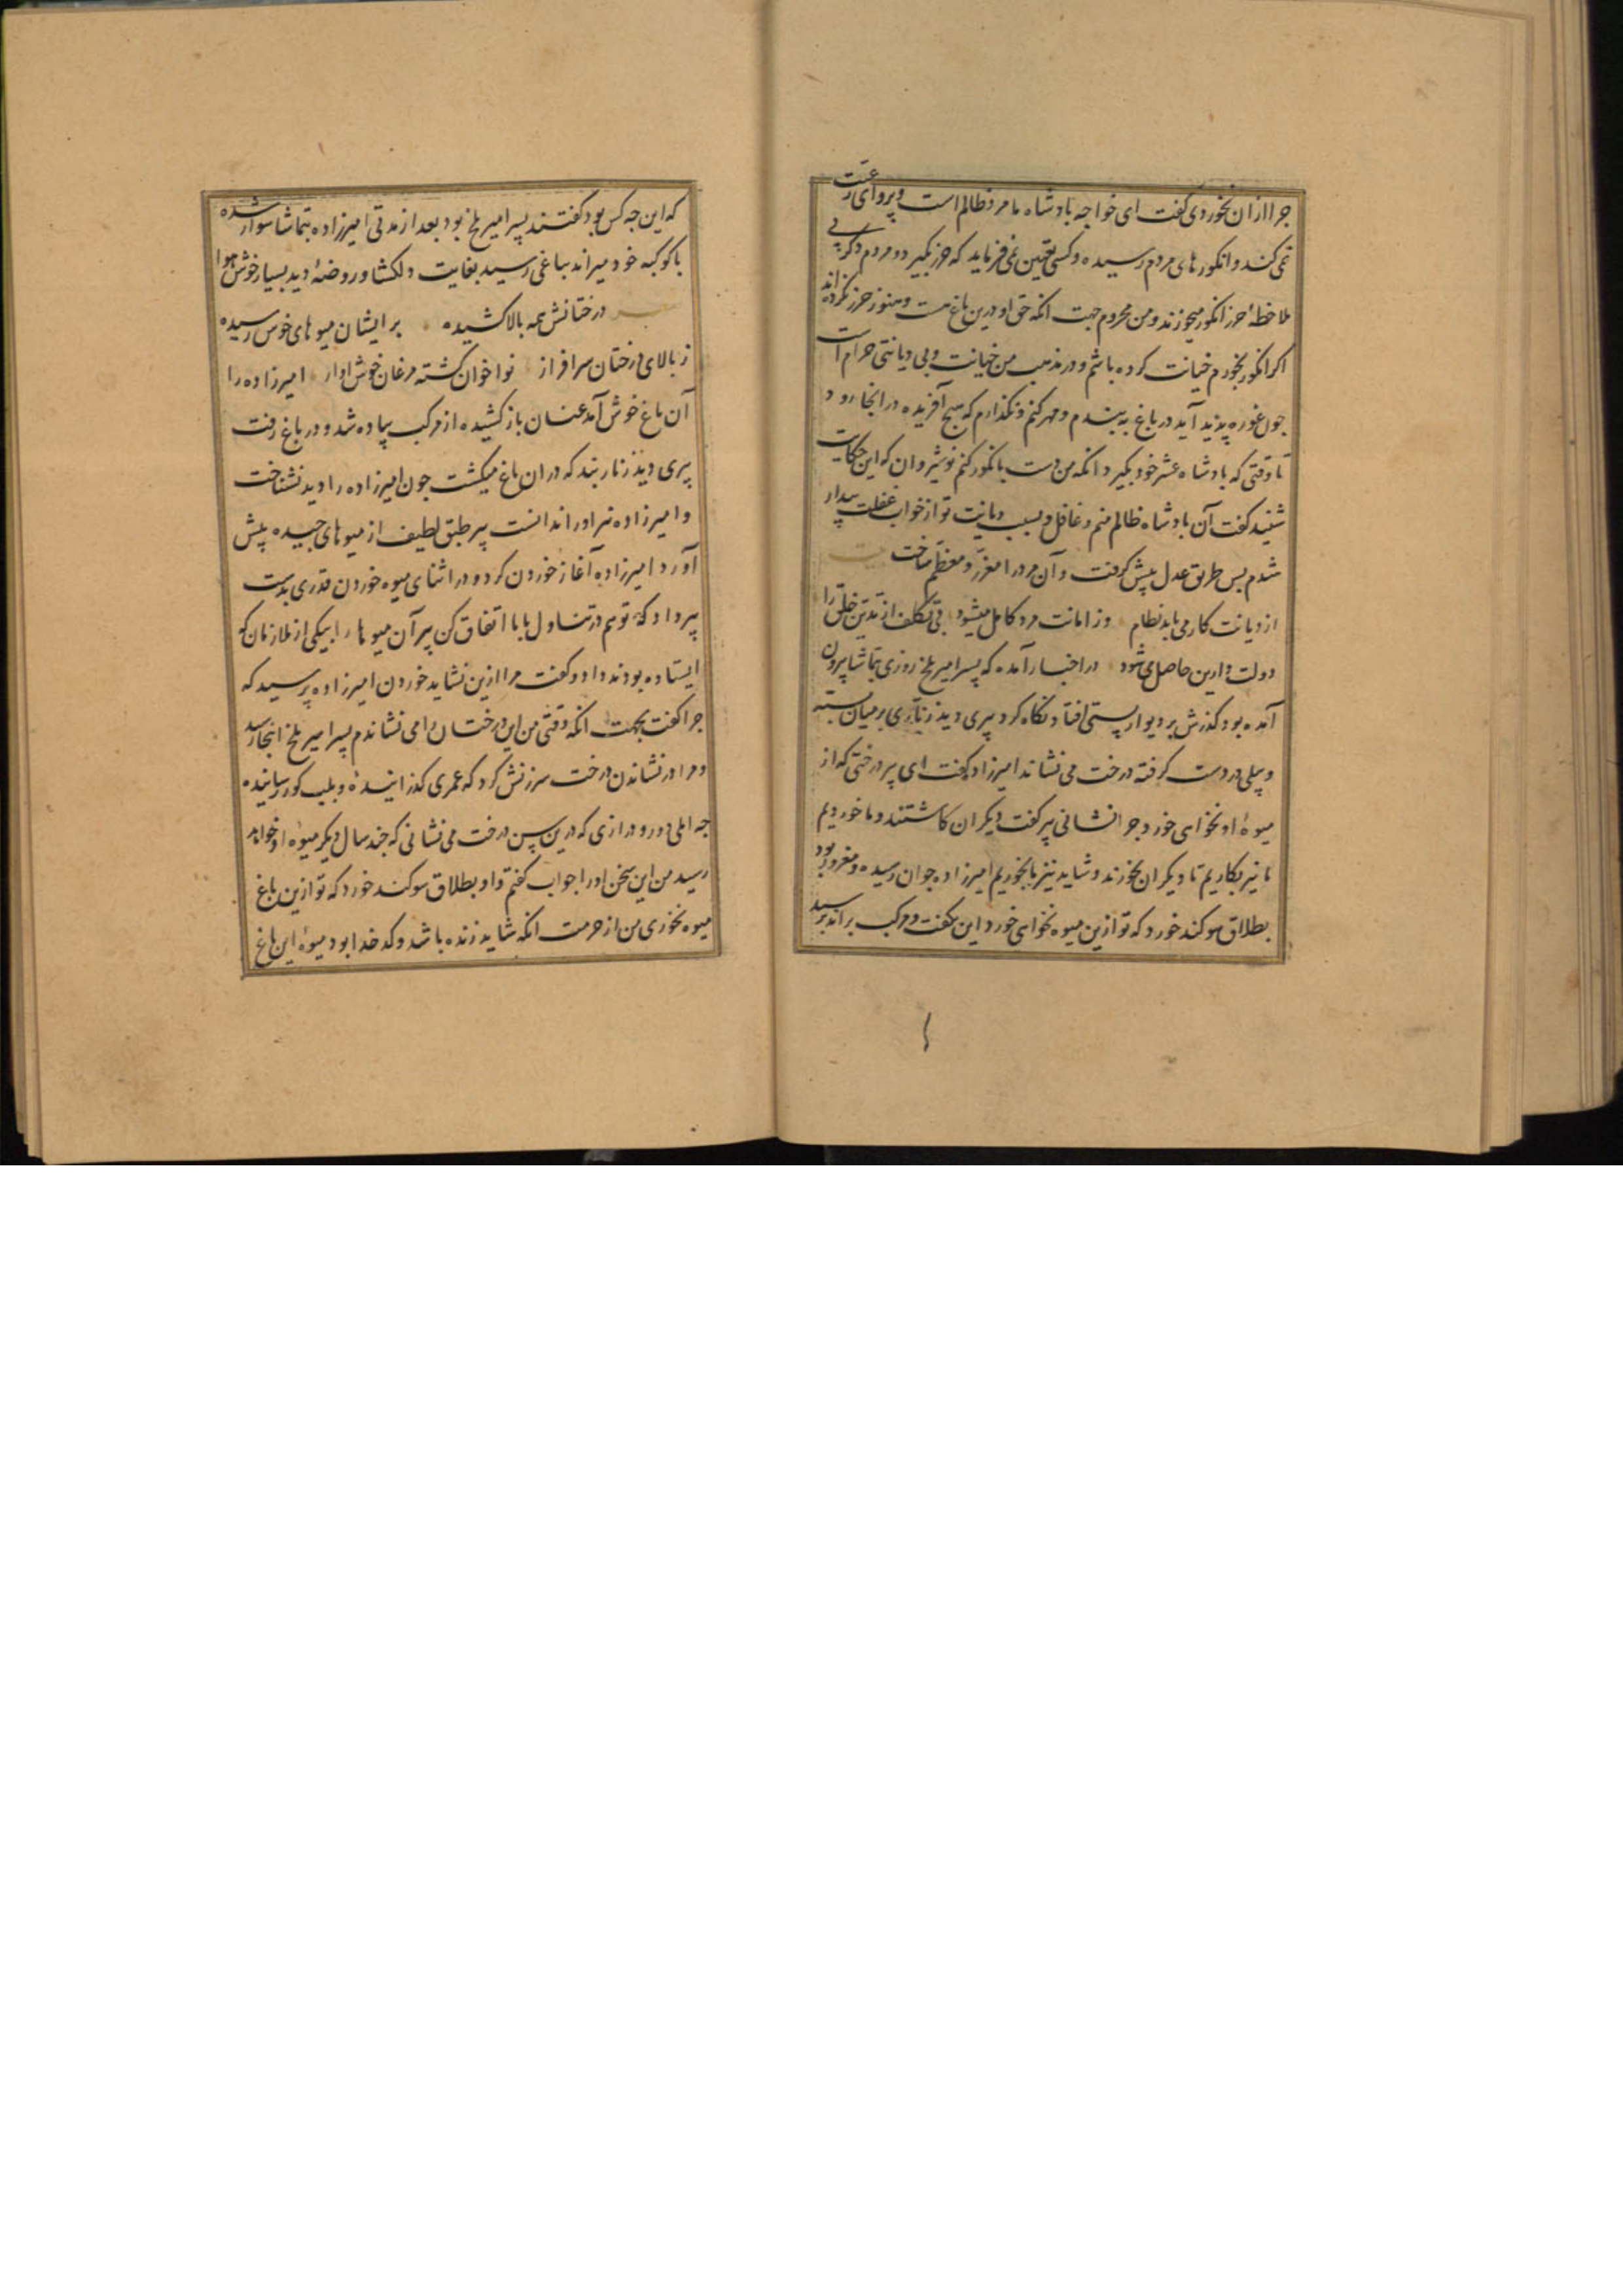 جرا ازان نخوردی گفت ای خواجه بادشاه ما مرد ظالم است و پروای رعیت
نمی کند و انکورهای مردم رسیده و کسی تعیین نمی فرماید که حرز بکیرد و مردم دکر بی
ملاحظهٔ حرز انکور میخورند و من محروم جهت انکه حق او درین باغ هست و هنوز حرز نکرده اند
اکر انکور بخورم خیانت کرده باشم و در مذهب من خیانت و بی دیانتی حرام است
جون غوره پدید آید در باغ به بندم و مهر کنم و نکذارم که هیج آفریده در انجا رود
تا وقتی که بادشاه عشر خود بکیرد انکه من دست بانکور کنم نوشیروان که این حکایت
شنید کفت آن بادشاه ظالم منم و غافل و بسبب دیانت تو از خواب غفلت بیدار
شدم بس طریق عدل پیش کرفت و آن مرد را معزز و معظم ساخت بیت
از دیانت کار می یابد نظام وز امانت مرد کامل میشود بی تکلف از تدین خلق را
دولت دارین حاصل می شود در اخبار آمده که پسر امیر بلخ روزی بتماشا بیرون
آمده بود کذرش بر دیوار بستی افتاد نکاه کرد پیری دید زناری بر میان بسته
و بیلی در دست کرفته درخت می نشاند امیرزاده کفت ای پیر درختی که از
میوهٔ او نخواهی خورد جرا نشانی پیر کفت دیکران کاشتند و ما خوردیم
ما نیز بکاریم تا دیکران بخورند و شاید نیز ما بخوریم امیرزاده جوان رسیده و مغرور بود
بطلاق سوکند خورد که تو ازین میوه نخواهی خورد این بکفت و مرکب براند پرسید
که این جه کس بود کفتند پسر امیر بلخ بود بعد از مدتی امیرزاده بتماشا سوار شده
با کوکبه خود میراند بباغی رسید بغایت دلکشا و روضهٔ دید بسیار خوش هوا
درختانش همه بالا کشیده بر ایشان میوهای خوش رسیده
ز بالای درختان سرافراز نواخوان کشته مرغان خوش اواز امیرزاده را
آن باغ خوش آمد عنان باز کشیده از مرکب پیاده شد و در باغ رفت
پیری دید زنار بند که در ان باغ میکشت جون امیرزاده را دید نشناخت
و امیرزاده نیز او را ندانست پیر طبق لطیف از میوهای جیده پیش
آورد امیرزاده آغاز خوردن کرد و در اثنای میوه خوردن قدری بدست
پیر داد که تو هم در تناول با ما اتفاق کن پیر آن میوها را بیکی از ملازمان که
ایستاده بودند داد و کفت مرا ازین نشاید خوردن امیرزاده پرسید که
جرا کفت بجهت انکه وقتی من این درختان را می نشاندم پسر امیر بلخ اینجا رسید
و مرا در نشاندن درخت سرزنش کرد که عمری کذرانیدهٔ و بلب کور رسانیده
جه املی دور و درازی که درین سن درخت می نشانی که جند سال دیکر میوهٔ او خواهد
رسید من این سخن او را جواب کفتم و او بطلاق سوکند خورد که تو ازین باغ
میوه نخوری من از حرمت انکه شاید زنده باشد و کدخدا بود میوهٔ این باغ